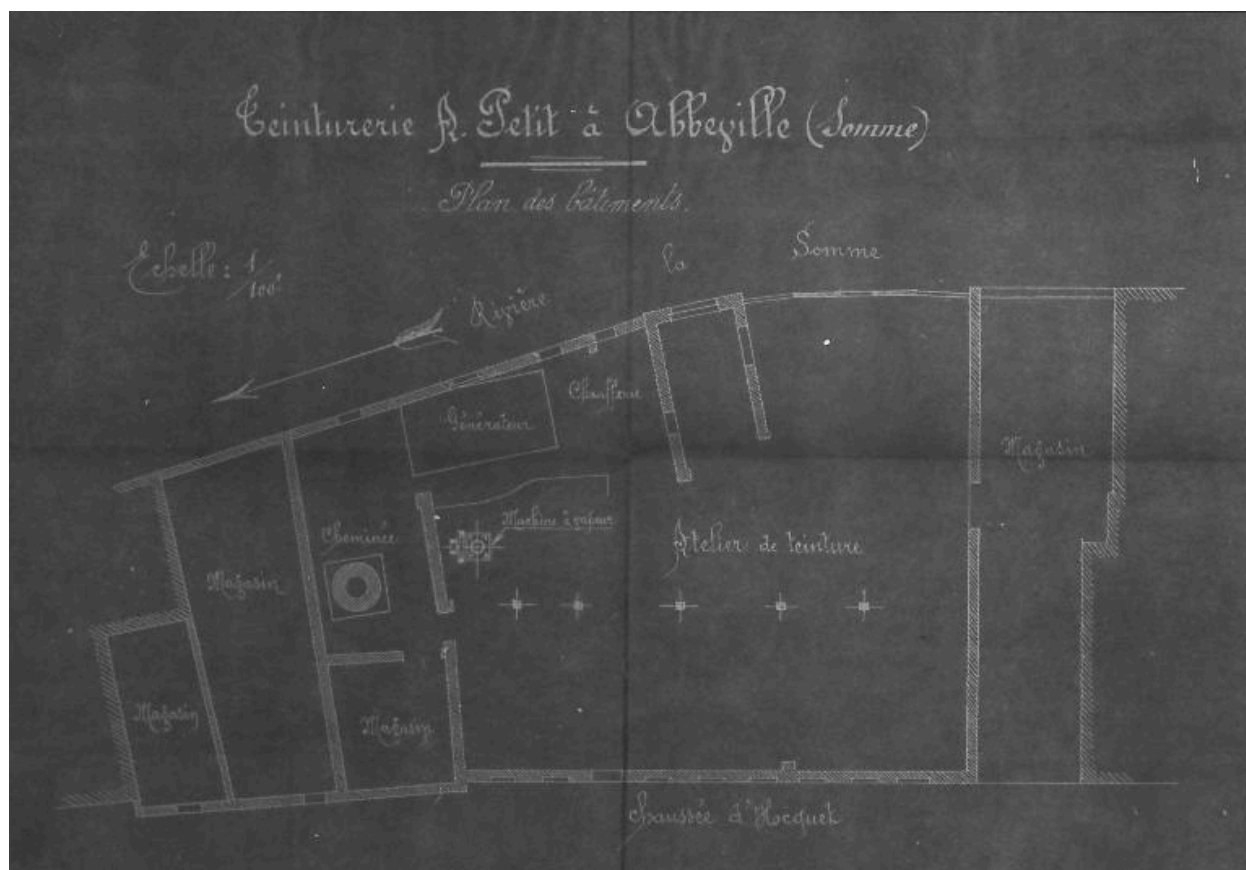 Teinturerie A. Petit à Abbeville (Somme)
Plan des bâtiments.
Echelle : 1/100e
Rivière la Somme
Chaufferie
Générateur
Magasin
Machine à vapeur
Cheminée
Atelier de teinture
Magasin
Magasin
Magasin
Chaussée d'Hocquet